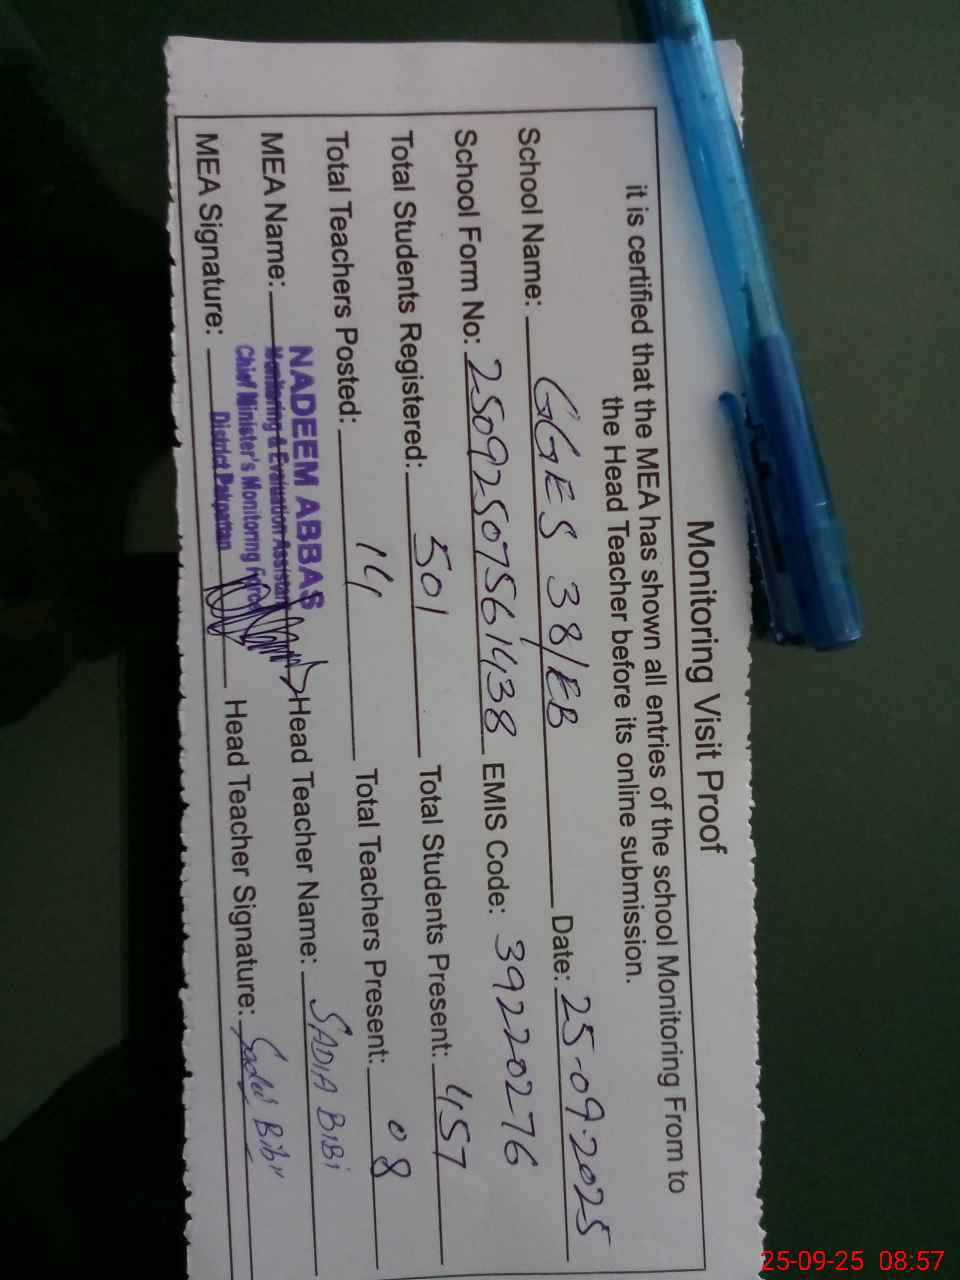 Monitoring Visit Proof
it is certified that the MEA has shown all entries of the school Monitoring From to
the Head Teacher before its online submission.
School Name: GGES 38/EB Date: 25-09-2025
School Form No: 25092507561438 EMIS Code: 39220276
Total Students Registered: 501 Total Students Present: 457
Total Teachers Posted: 14 Total Teachers Present: 08
MEA Name: NADEEM ABBAS Head Teacher Name: SADIA BIBI
Monitoring & Evaluation Assistant
Chief Minister's Monitoring Force
District Pakpattan
MEA Signature: Head Teacher Signature: Sadia Bibi
25-09-25 08:57